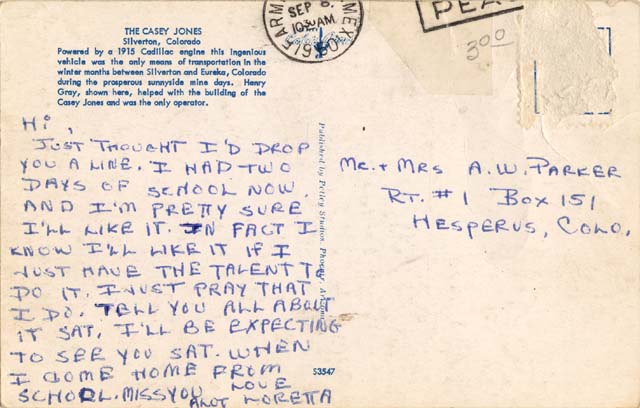 THE CASEY JONES
Silverton, Colorado
Powered by a 1915 Cadillac engine this ingenious
vehicle was the only means of transportation in the
winter months between Silverton and Eureka, Colorado
during the prosperous sunnyside mine days. Henry
Gray, shown here, helped with the building of the
Casey Jones and was the only operator.
FARM
MEX
SEP
1030AM
PEA
300
Hi,
JUST THOUGHT I'D DROP
YOU A LINE. I HAD TWO
DAYS OF SCHOOL NOW.
AND I'M PRETTY SURE
I'LL LIKE IT. IN FACT I
KNOW I'LL LIKE IT IF I
JUST HAVE THE TALENT TO
DO IT. I JUST PRAY THAT
I DO. TELL YOU ALL ABOUT
IT SAT. I'LL BE EXPECTING
TO SEE YOU SAT. WHEN
I COME HOME FROM
SCHOOL. MISS YOU
ALOT
LOVE
LORETTA
Published by Petley Studios Phoenix, Arizona
S3547
Mr. + Mrs A.W. PARKER
RT. #1 BOX 151
HESPERUS, COLO.